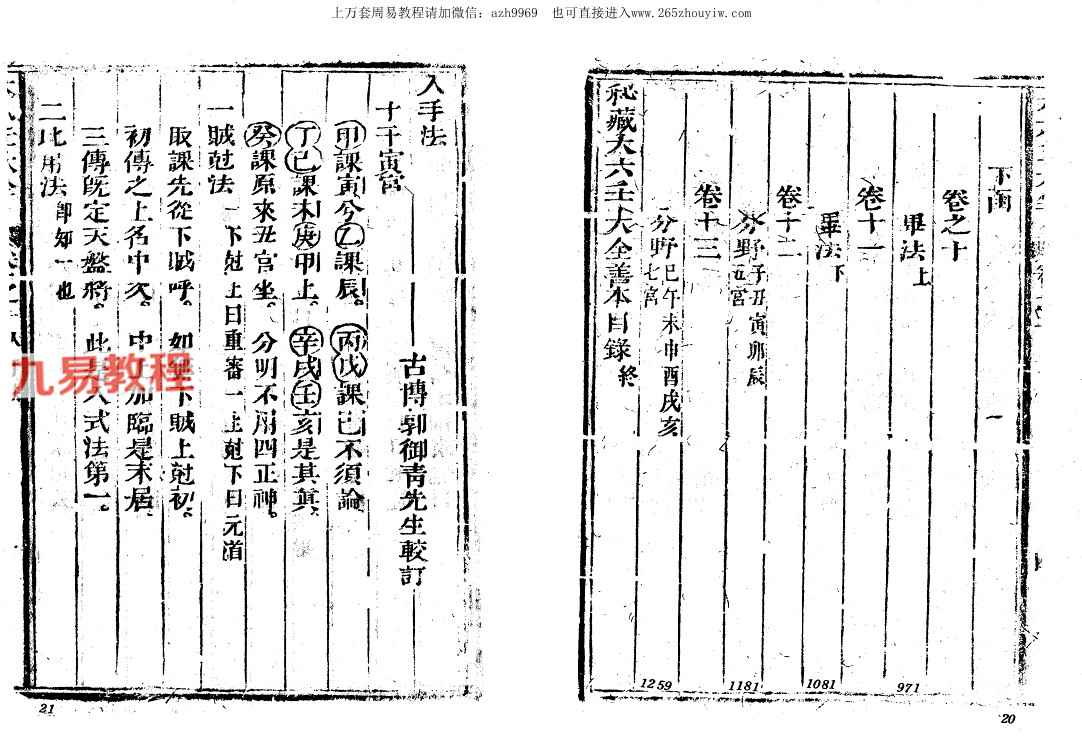 上万套周易教程请加微信：azh9969　也可直接进入www.265zhouyiw.com
下函　一
卷之十
畢法上
971
卷十一
畢法下
1081
卷十二
分野子丑寅卯辰
五宮
1181
卷十三
分野巳午未申酉戌亥
七宮
1259
秘藏大六壬大全善本目錄終
20
入手法
古博郭御青先生較訂
十干寅宮
甲課寅兮乙課辰。　丙戊課巳不須論
丁己課未庚申上。　辛戌壬亥是其真。
癸課原來丑宮坐。　分明不用四正神。
一賊尅法　一下尅上曰重審一上尅下曰元首
取課先從下賊呼。　如無下賊上尅初。
初傳之上名中次。　中加臨是末居。
三傳既定天盤將。　此是入式法第一。
二比用法　即知一也
九易教程
21